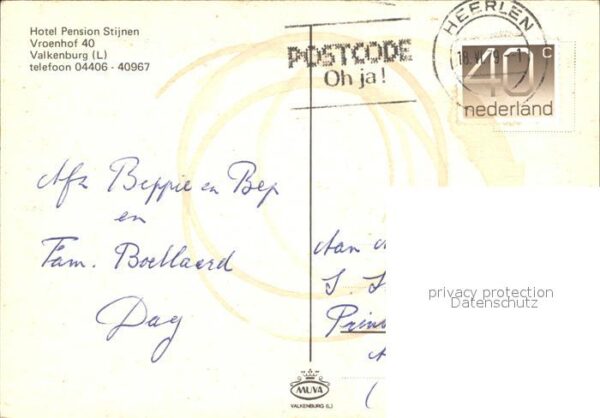 Hotel Pension Stijnen
Vroenhof 40
Valkenburg (L)
telefoon 04406 - 40967
POSTCODE
Oh ja!
HEERLEN
40 c
nederland
Afz Beppie en Bep
en
Fam. Boellaard
Dag
Aan
Prin
privacy protection
Datenschutz
MUVA
VALKENBURG (L.)